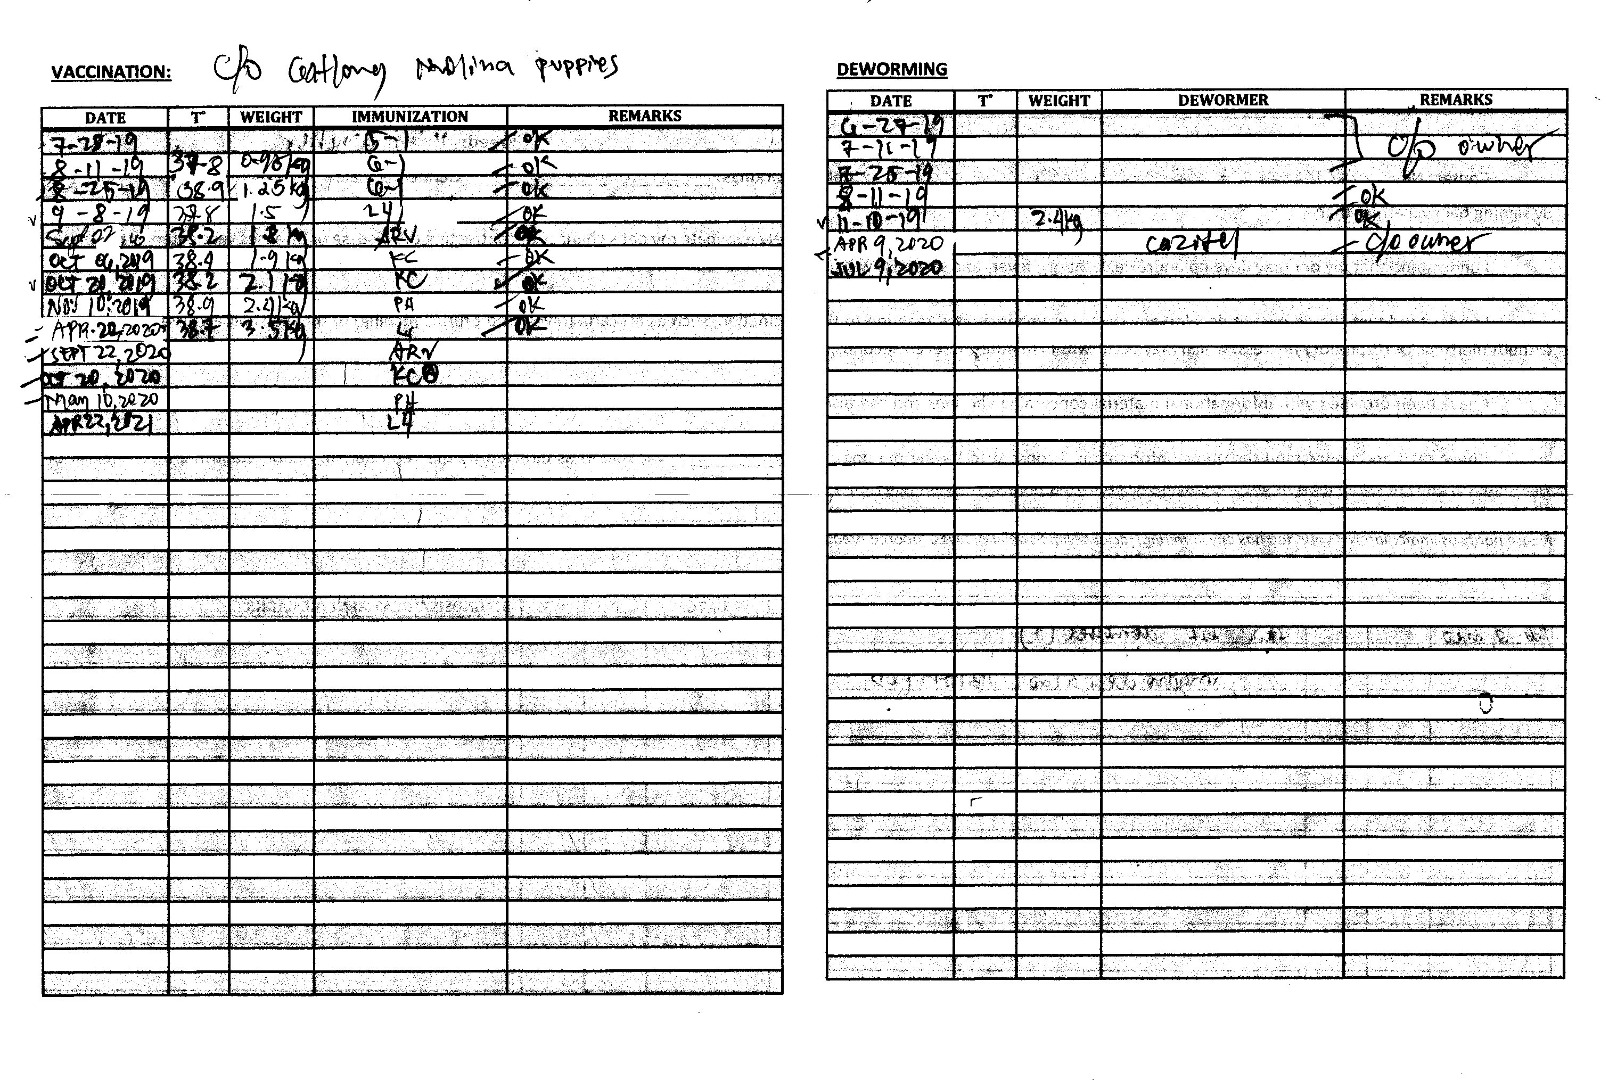 VACCINATION: c/o puppies
DATE T° WEIGHT IMMUNIZATION REMARKS
7-28-19 5-1 OK
8-11-19 37.8 0.95kg 6-1 OK
8-25-19 38.9 1.25kg 6-1 OK
9-8-19 1.5 L4 OK
38.2 kg ARV OK
OCT 06,2019 38.9 1.9kg KC OK
OCT 20,2019 38.2 2.1kg KC OK
NOV 10,2019 38.9 2.4kg PH OK
APR.20,2020 38.7 3.5kg L4 OK
SEPT 22,2020 ARV
20,2020 KC
10,2020 PH
APR 22,2021 L4
DEWORMING
DATE T° WEIGHT DEWORMER REMARKS
6-27-19
7-11-19 c/o owner
7-25-19
8-11-19 OK
11-10-19 2.4kg OK
APR 9,2020 c/o owner
JUL 9,2020